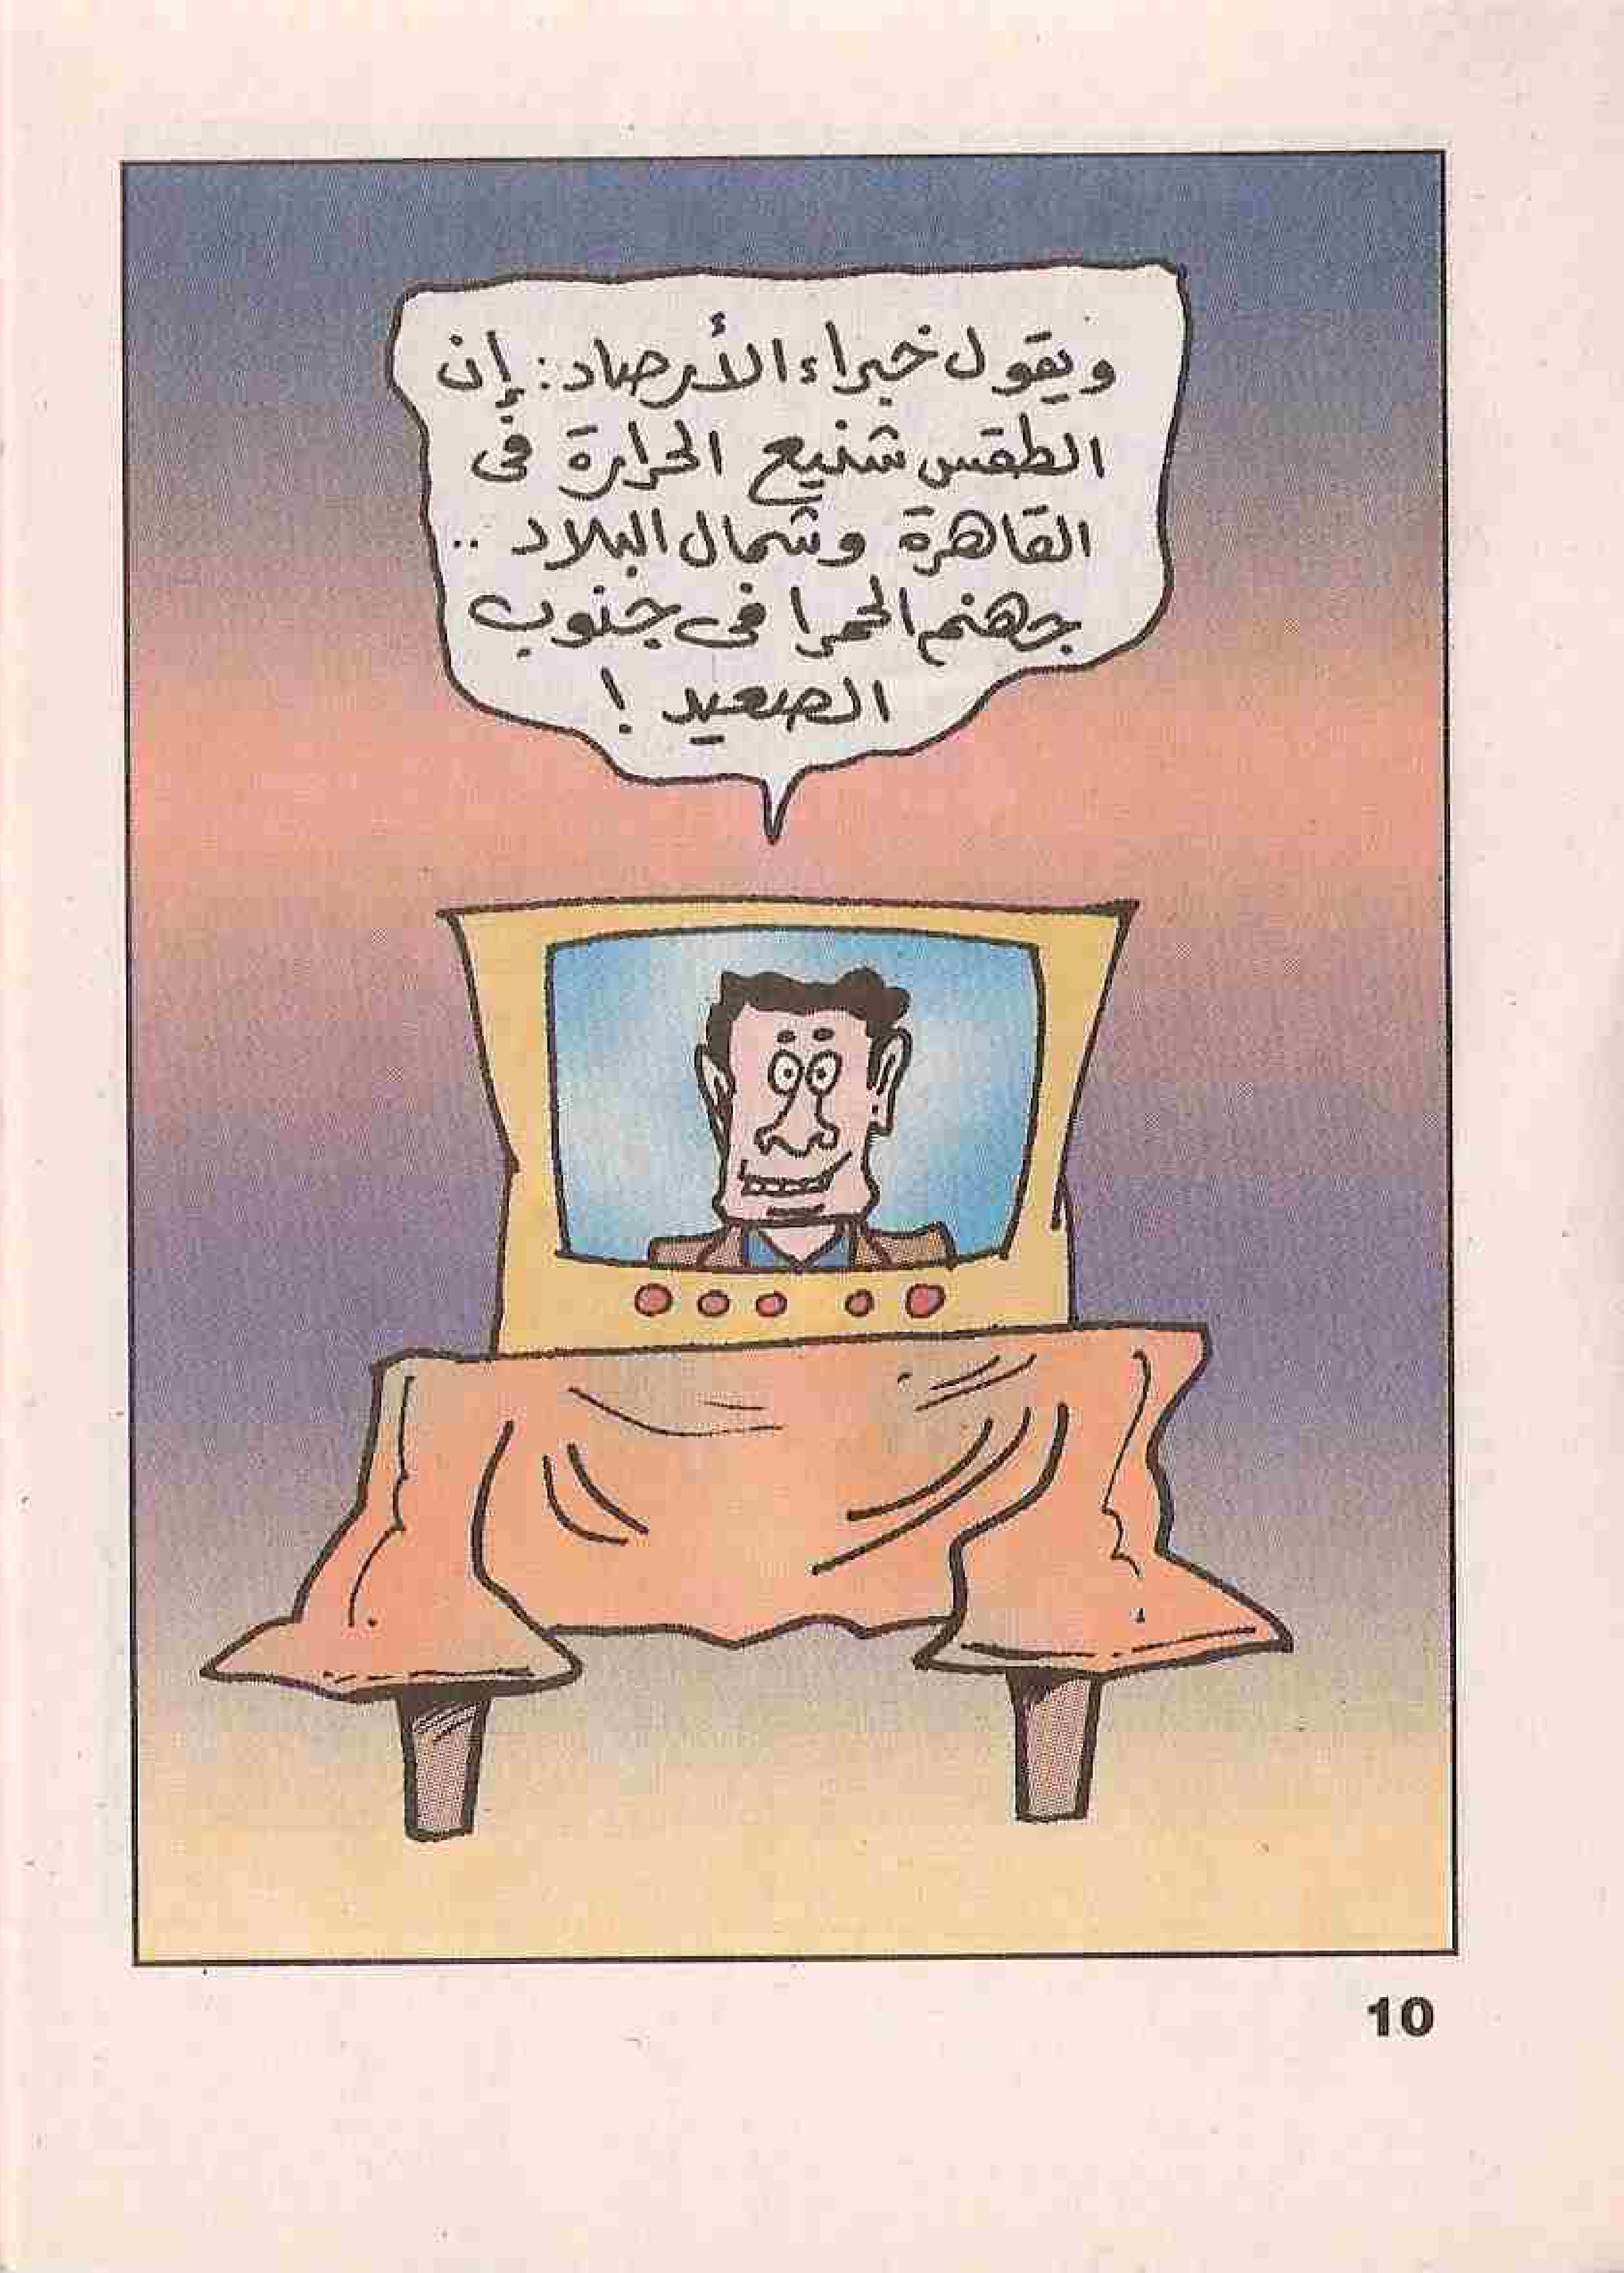 ويقول خبراء الأرصاد: إن
الطقس شنيع الحرارة فى
القاهرة وشمال البلاد ..
جهنم الحمرا فى جنوب
الصعيد !
10